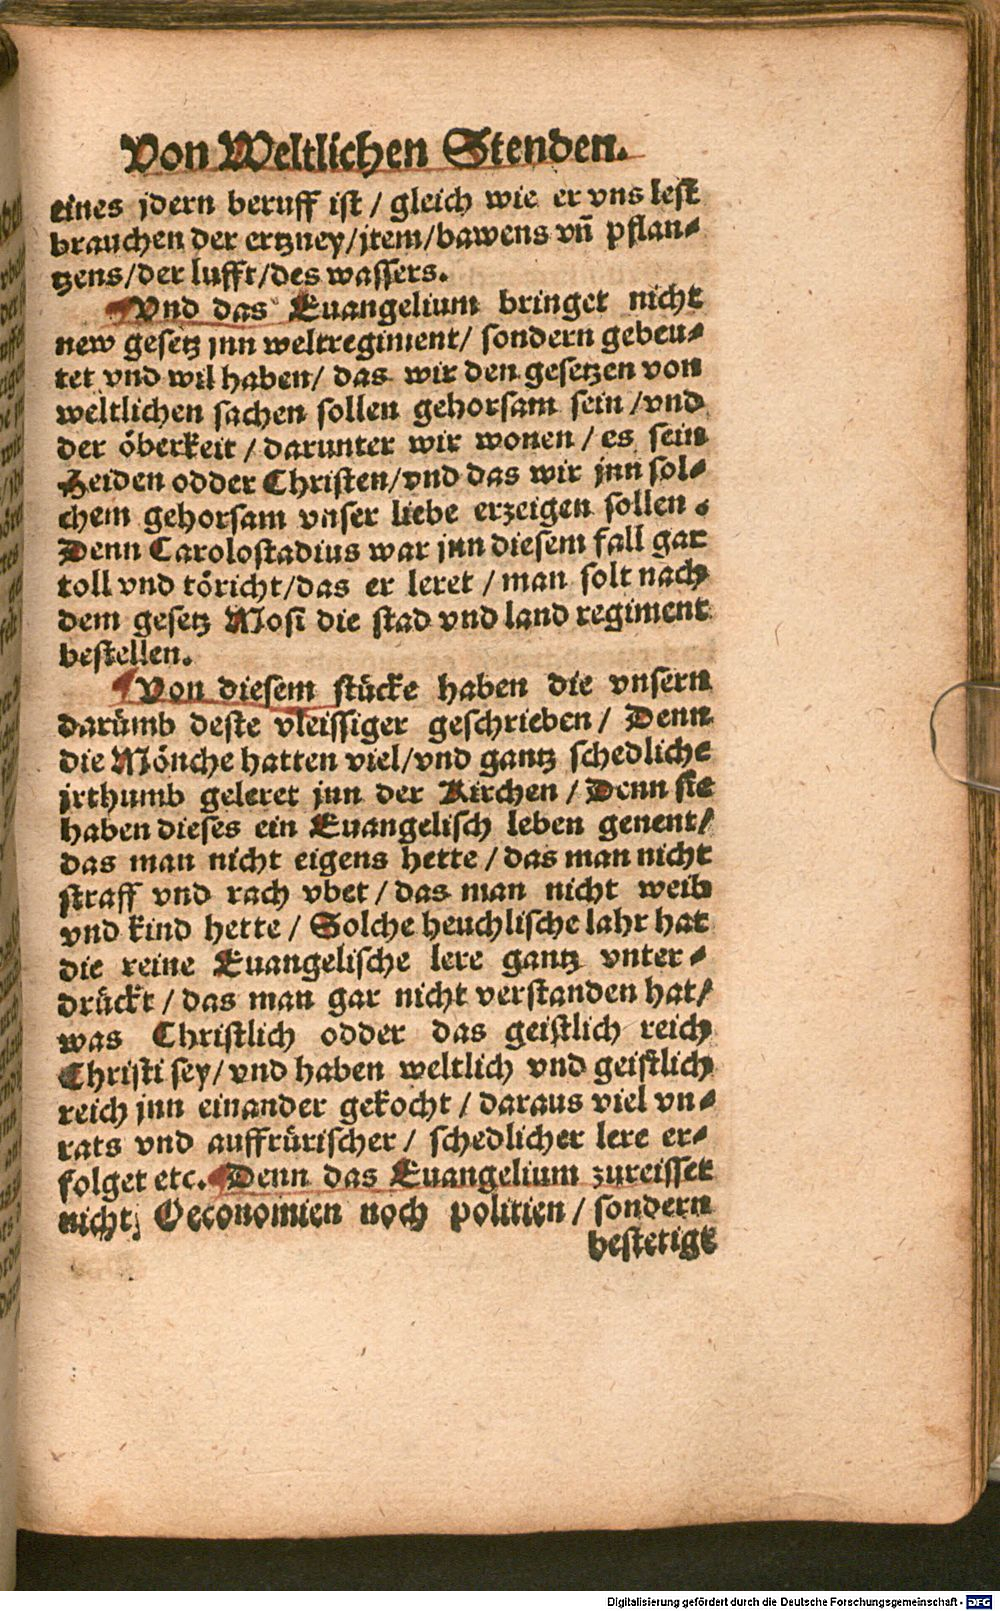 Von Weltlichen Stenden.
eines jdern beruff ist / gleich wie er vns lest
brauchen der ertzney/jtem/bawens vñ pflan⸗
tzens/der lufft/des wassers.
Vnd das Euangelium bringet nicht
new gesetz jnn weltregiment/ sondern gebeu⸗
tet vnd wil haben/ das wir den gesetzen von
weltlichen sachen sollen gehorsam sein /vnd
der öberkeit / darunter wir wonen / es sein
Heiden odder Christen/vnd das wir jnn sol⸗
chem gehorsam vnser liebe erzeigen sollen.
Denn Carolostadius war jnn diesem fall gar
toll vnd töricht/das er leret / man solt nach
dem gesetz Mosi die stad vnd land regiment
bestellen.
Von diesem stücke haben die vnsern
darümb deste vleissiger geschrieben / Denn
die Mönche hatten viel/vnd gantz schedliche
jrthumb geleret jnn der Kirchen / Denn sie
haben dieses ein Euangelisch leben genent/
das man nicht eigens hette / das man nicht
straff vnd rach vbet / das man nicht weib
vnd kind hette / Solche heuchlische lahr hat
die reine Euangelische lere gantz vnter⸗
drückt / das man gar nicht verstanden hat/
was Christlich odder das geistlich reich
Christi sey/ vnd haben weltlich vnd geistlich
reich jnn einander gekocht / daraus viel vn⸗
rats vnd auffrürischer / schedlicher lere er⸗
folget etc. Denn das Euangelium zureisset
nicht, Oeconomien noch politien / sondern
bestetigt
Digitalisierung gefördert durch die Deutsche Forschungsgemeinschaft - DFG